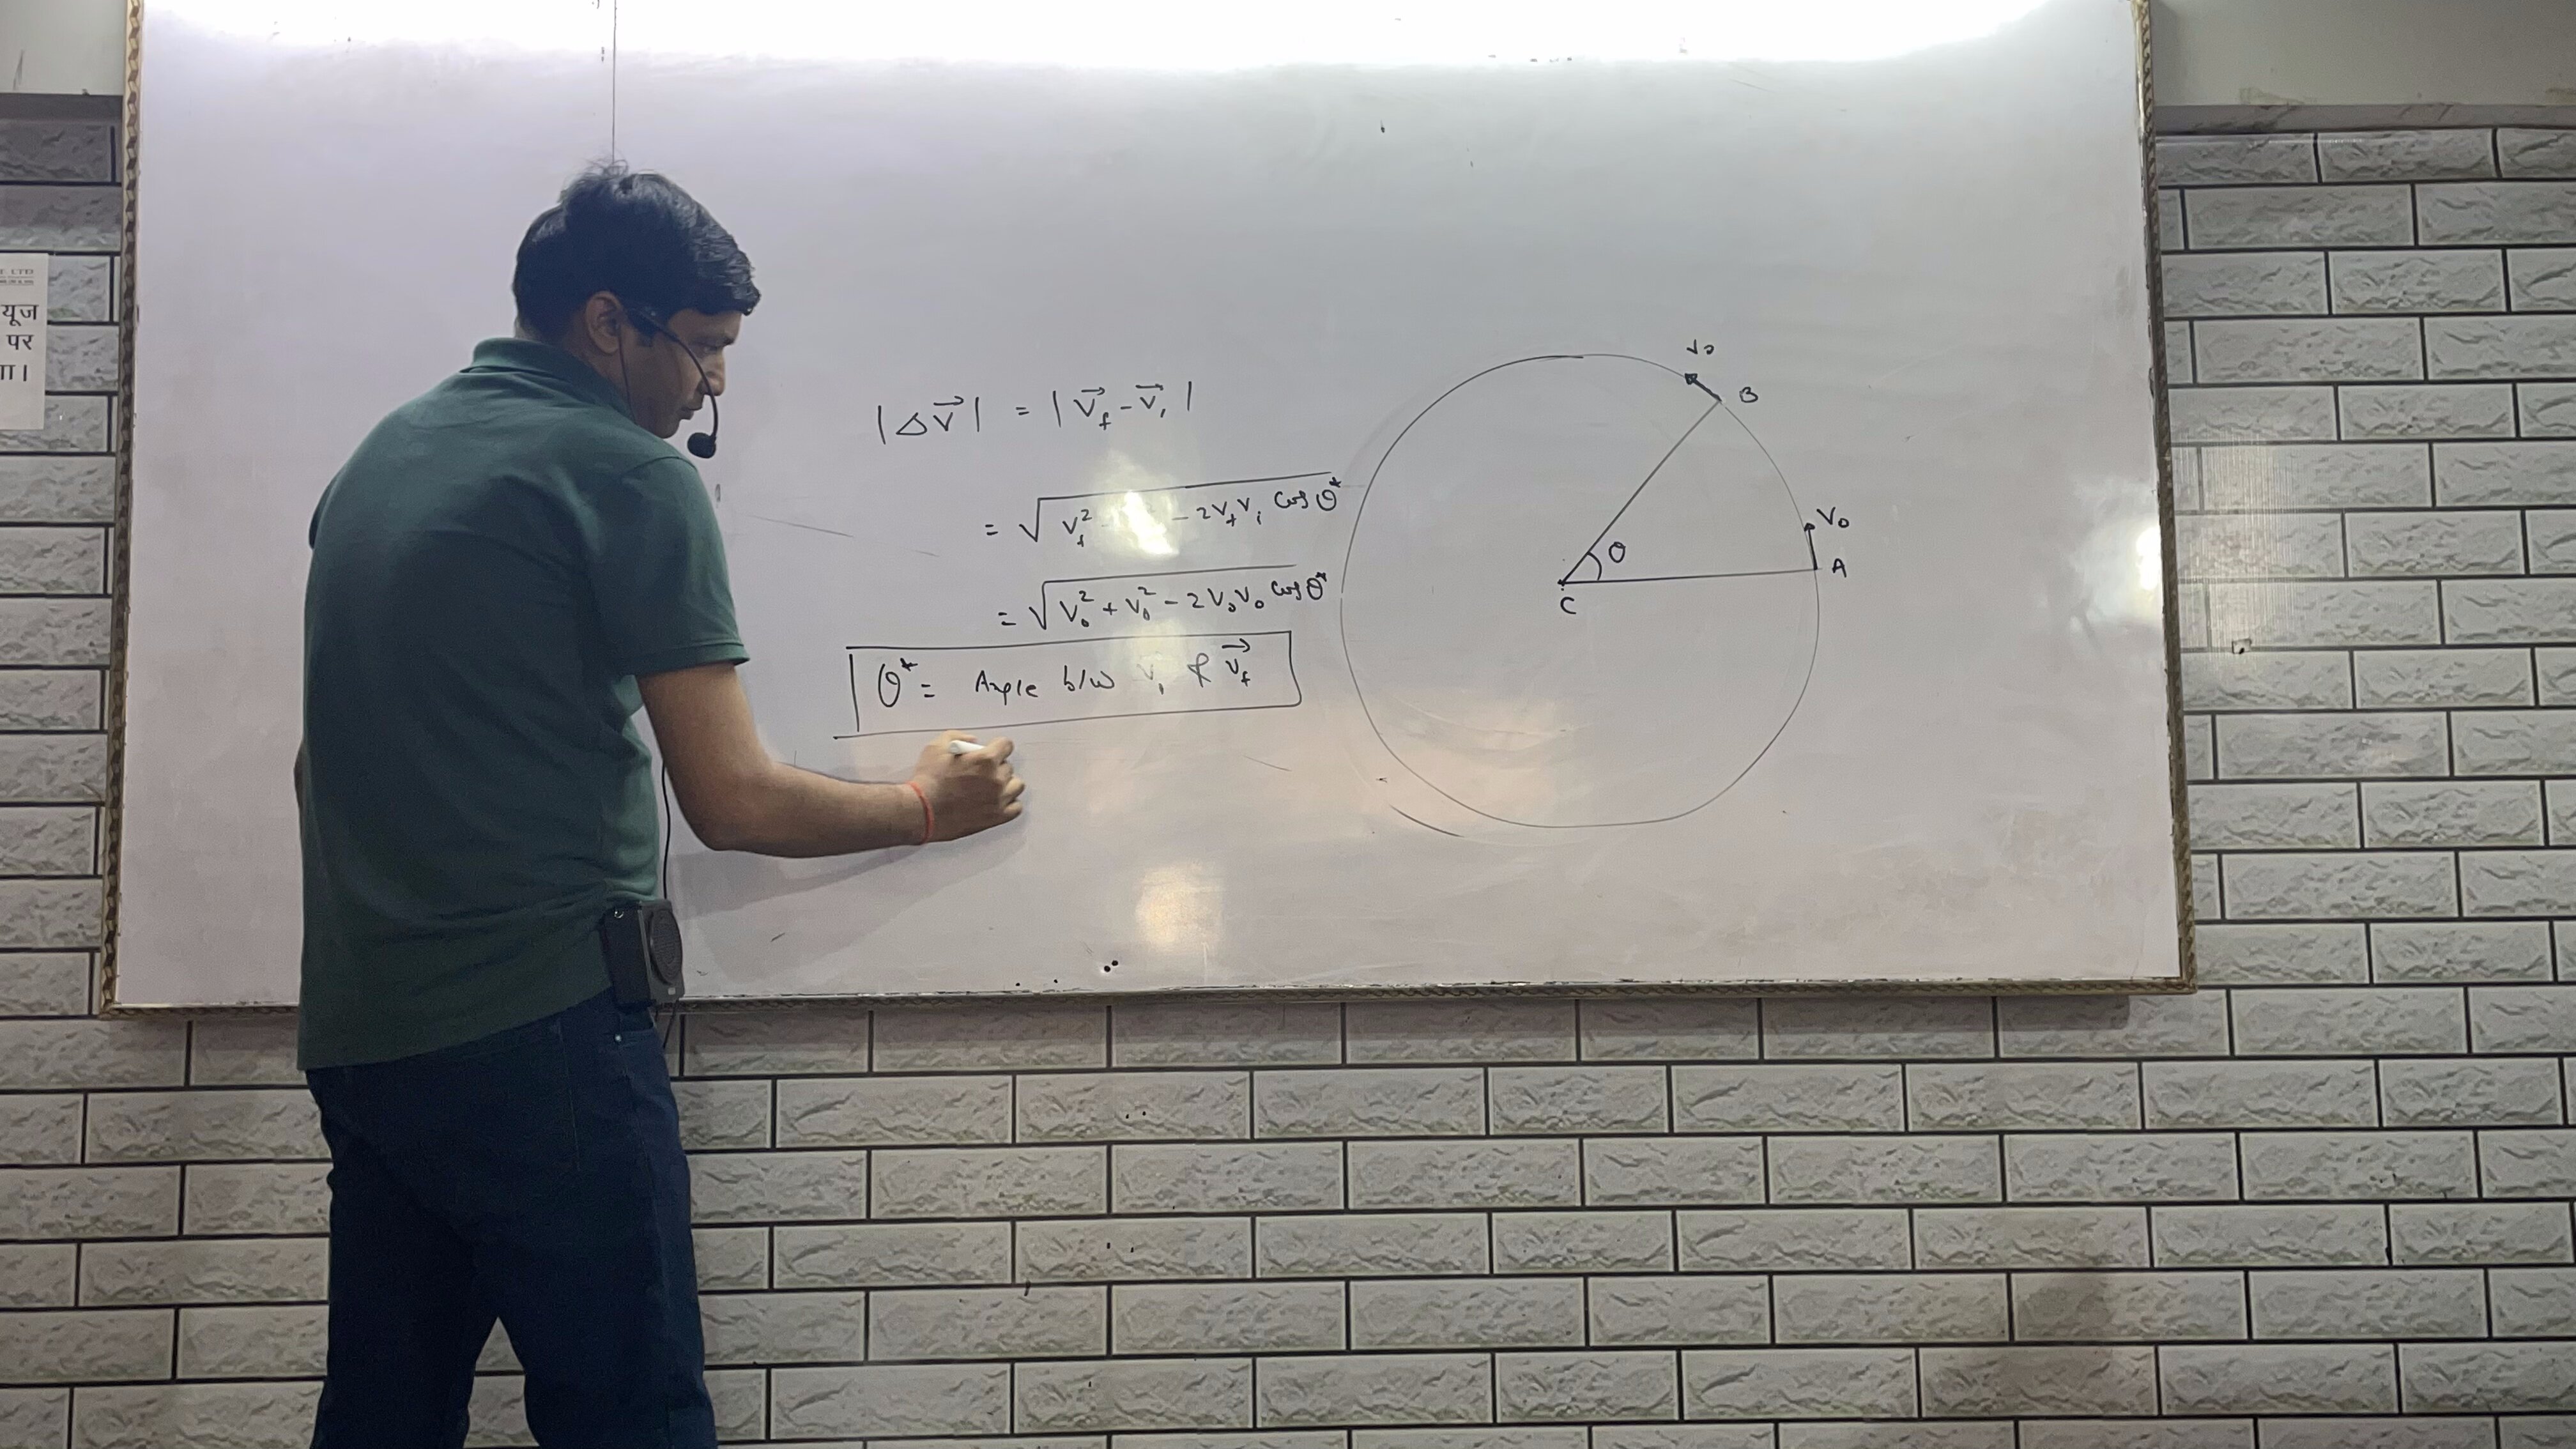 यूज
पर
गा।
|Δv⃗| = |v⃗_f - v⃗_i|
= √(v_f² - 2v_f v_i cosθ*)
= √(v₀² + v₀² - 2v₀v₀ cosθ*)
θ* = Angle b/w v_i & v⃗_f
v₀
B
v₀
A
θ
C